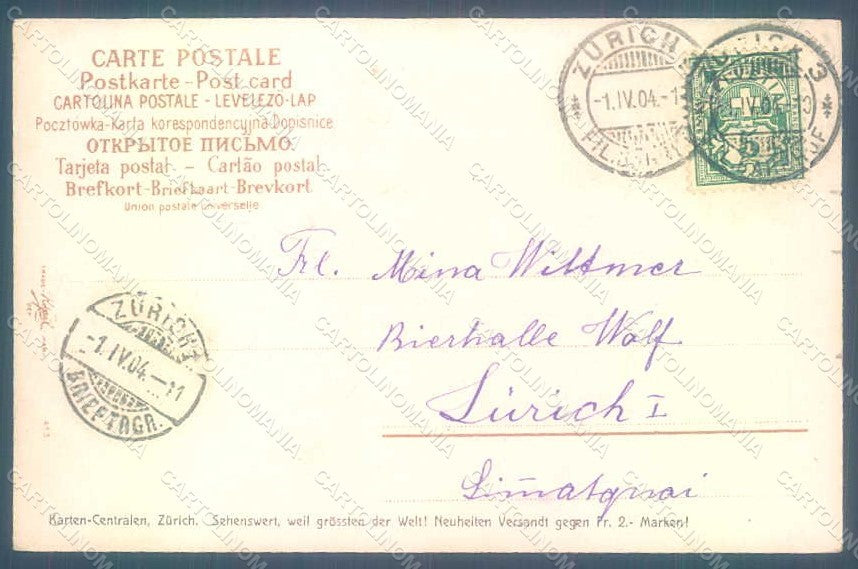 CARTE POSTALE
Postkarte - Post card
CARTOLINA POSTALE - LEVELEZÖ-LAP
Pocztówka-Karta korespondencyjna Dopisnice
ОТКРЫТОЕ ПИСЬМО
Tarjeta postal - Cartão postal
Brefkort-Briefkaart-Brevkort
Union postale universelle
ZÜRICH
-1.IV.04.-1
ZÜRICH 3
IV.04
5
Frl. Mina Wittmer
Bierhalle Wolf
Zürich I
Limatquai
ZÜRICH 1
-1.IV.04.-11
BRIEFTRGR.
Karten-Centralen, Zürich. Sehenswert, weil grössten der Welt! Neuheiten Versandt gegen Fr. 2.- Marken!
CARTOLINOMANIA